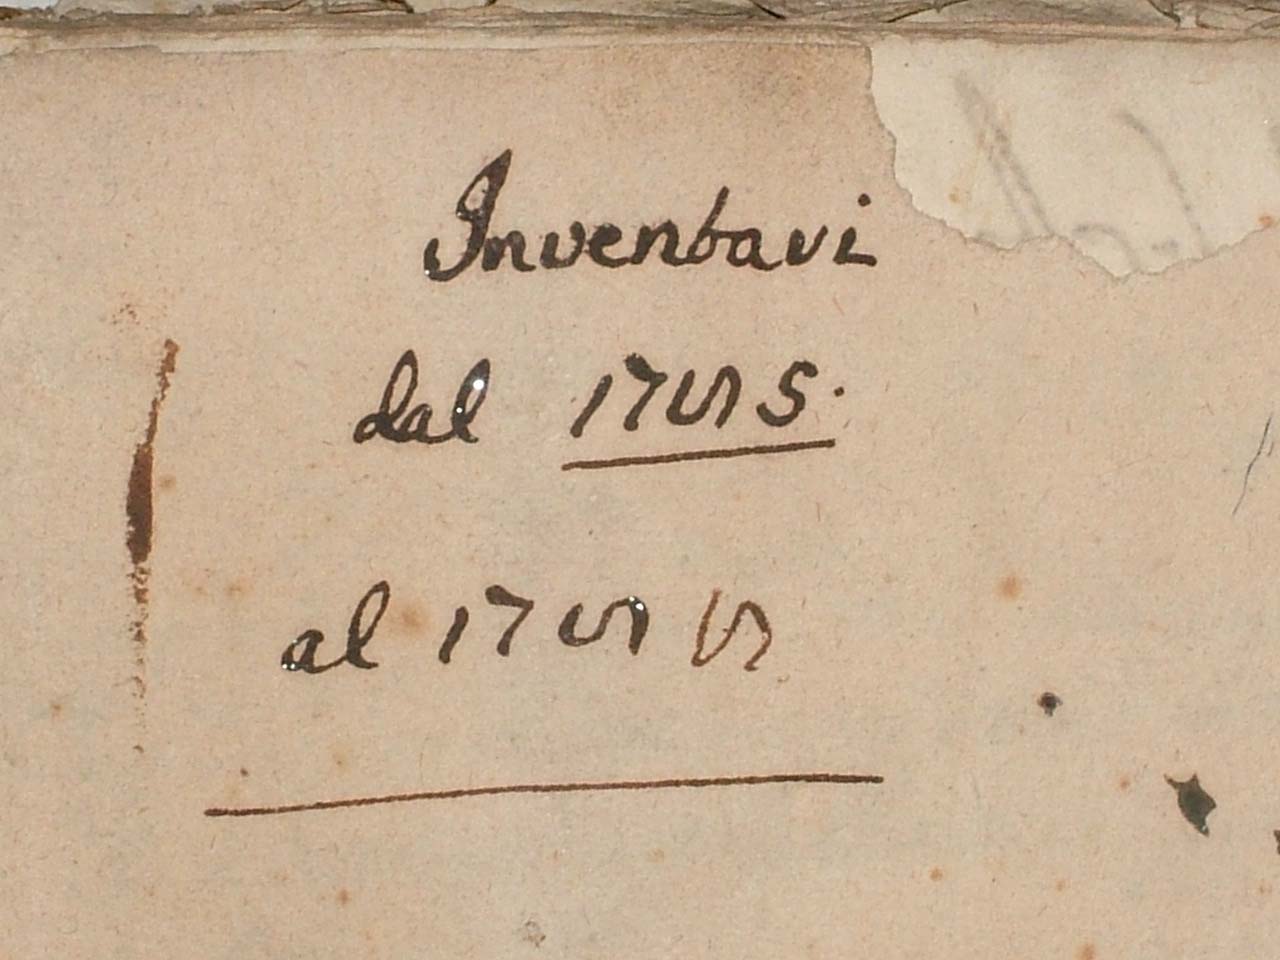 Inventari
dal 1785.
al 1788